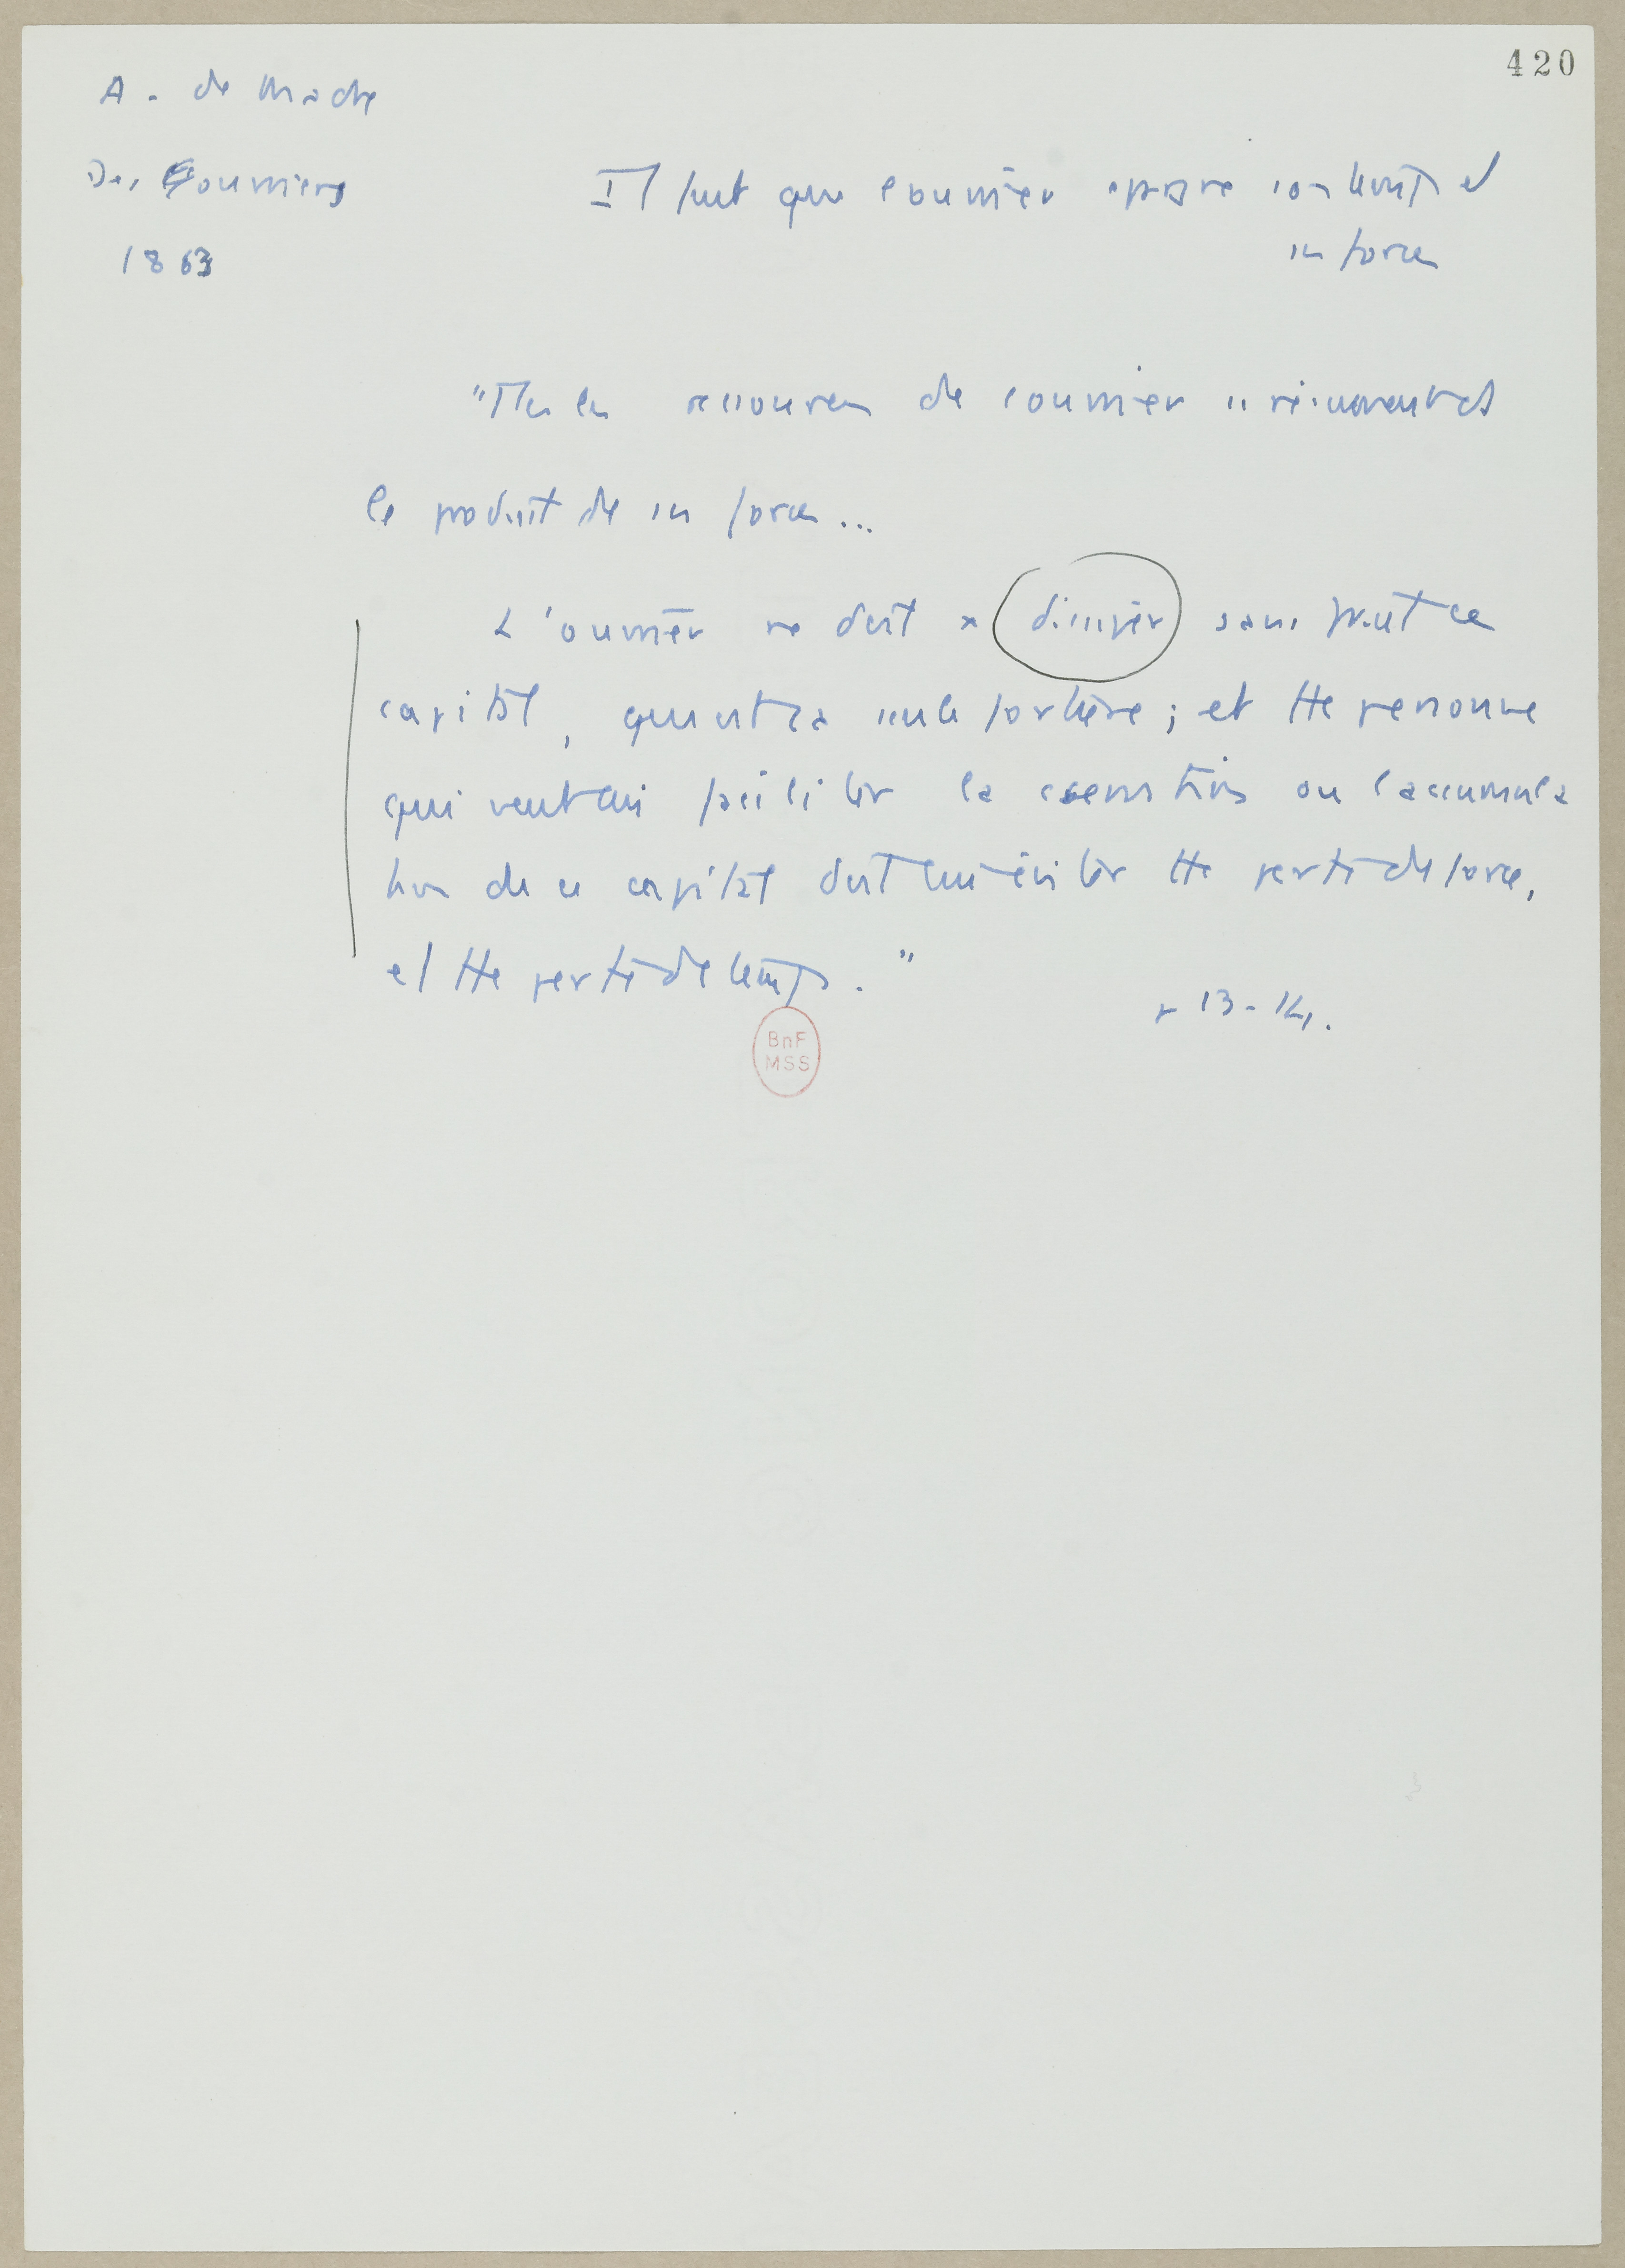 420
A. de Madre
Des ouvriers
1863
Il faut que l'ouvrier épargne son temps et
sa force
"Mais les ressources de l'ouvrier
le produit de sa force...
L'ouvrier ne doit dissiper sans profit ce
capital, qui est sa seule fortune ; et tte personne
qui veut lui faciliter la conservation ou l'accumula
tion de ce capital doit lui éviter tte perte de force,
et tte perte de temps."
p 13-14.
BnF
MSS